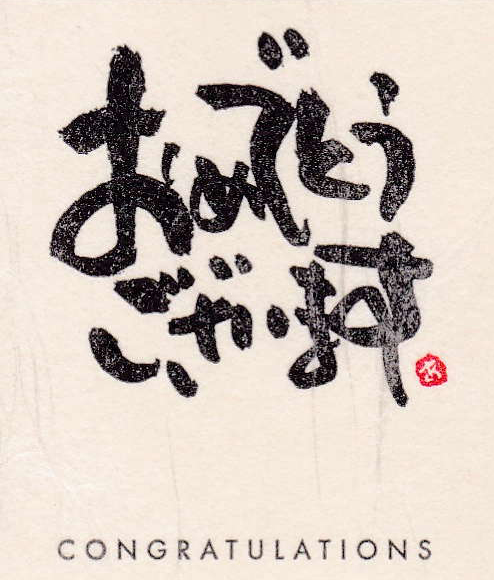 おめでとう
ございます
CONGRATULATIONS